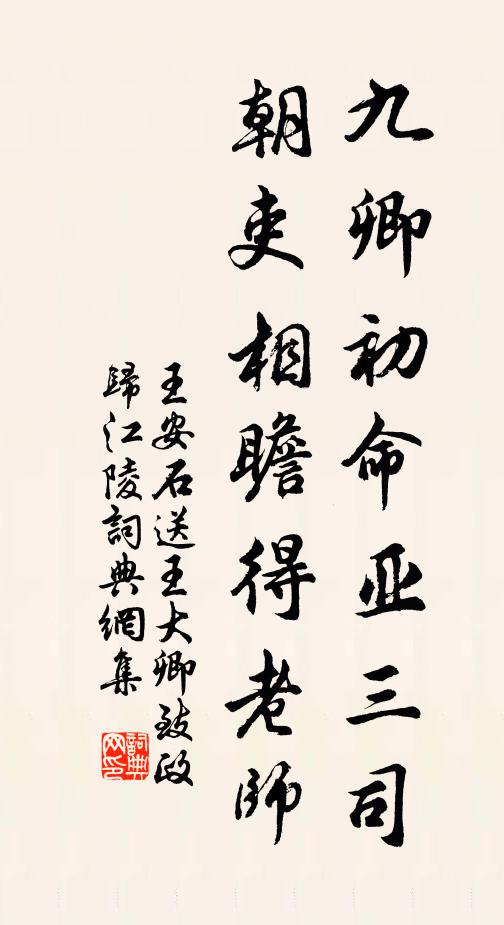 九卿初命亚三司
朝吏相瞻得老师
王安石送王大卿致政
歸江陵詞典網集
詞典网印